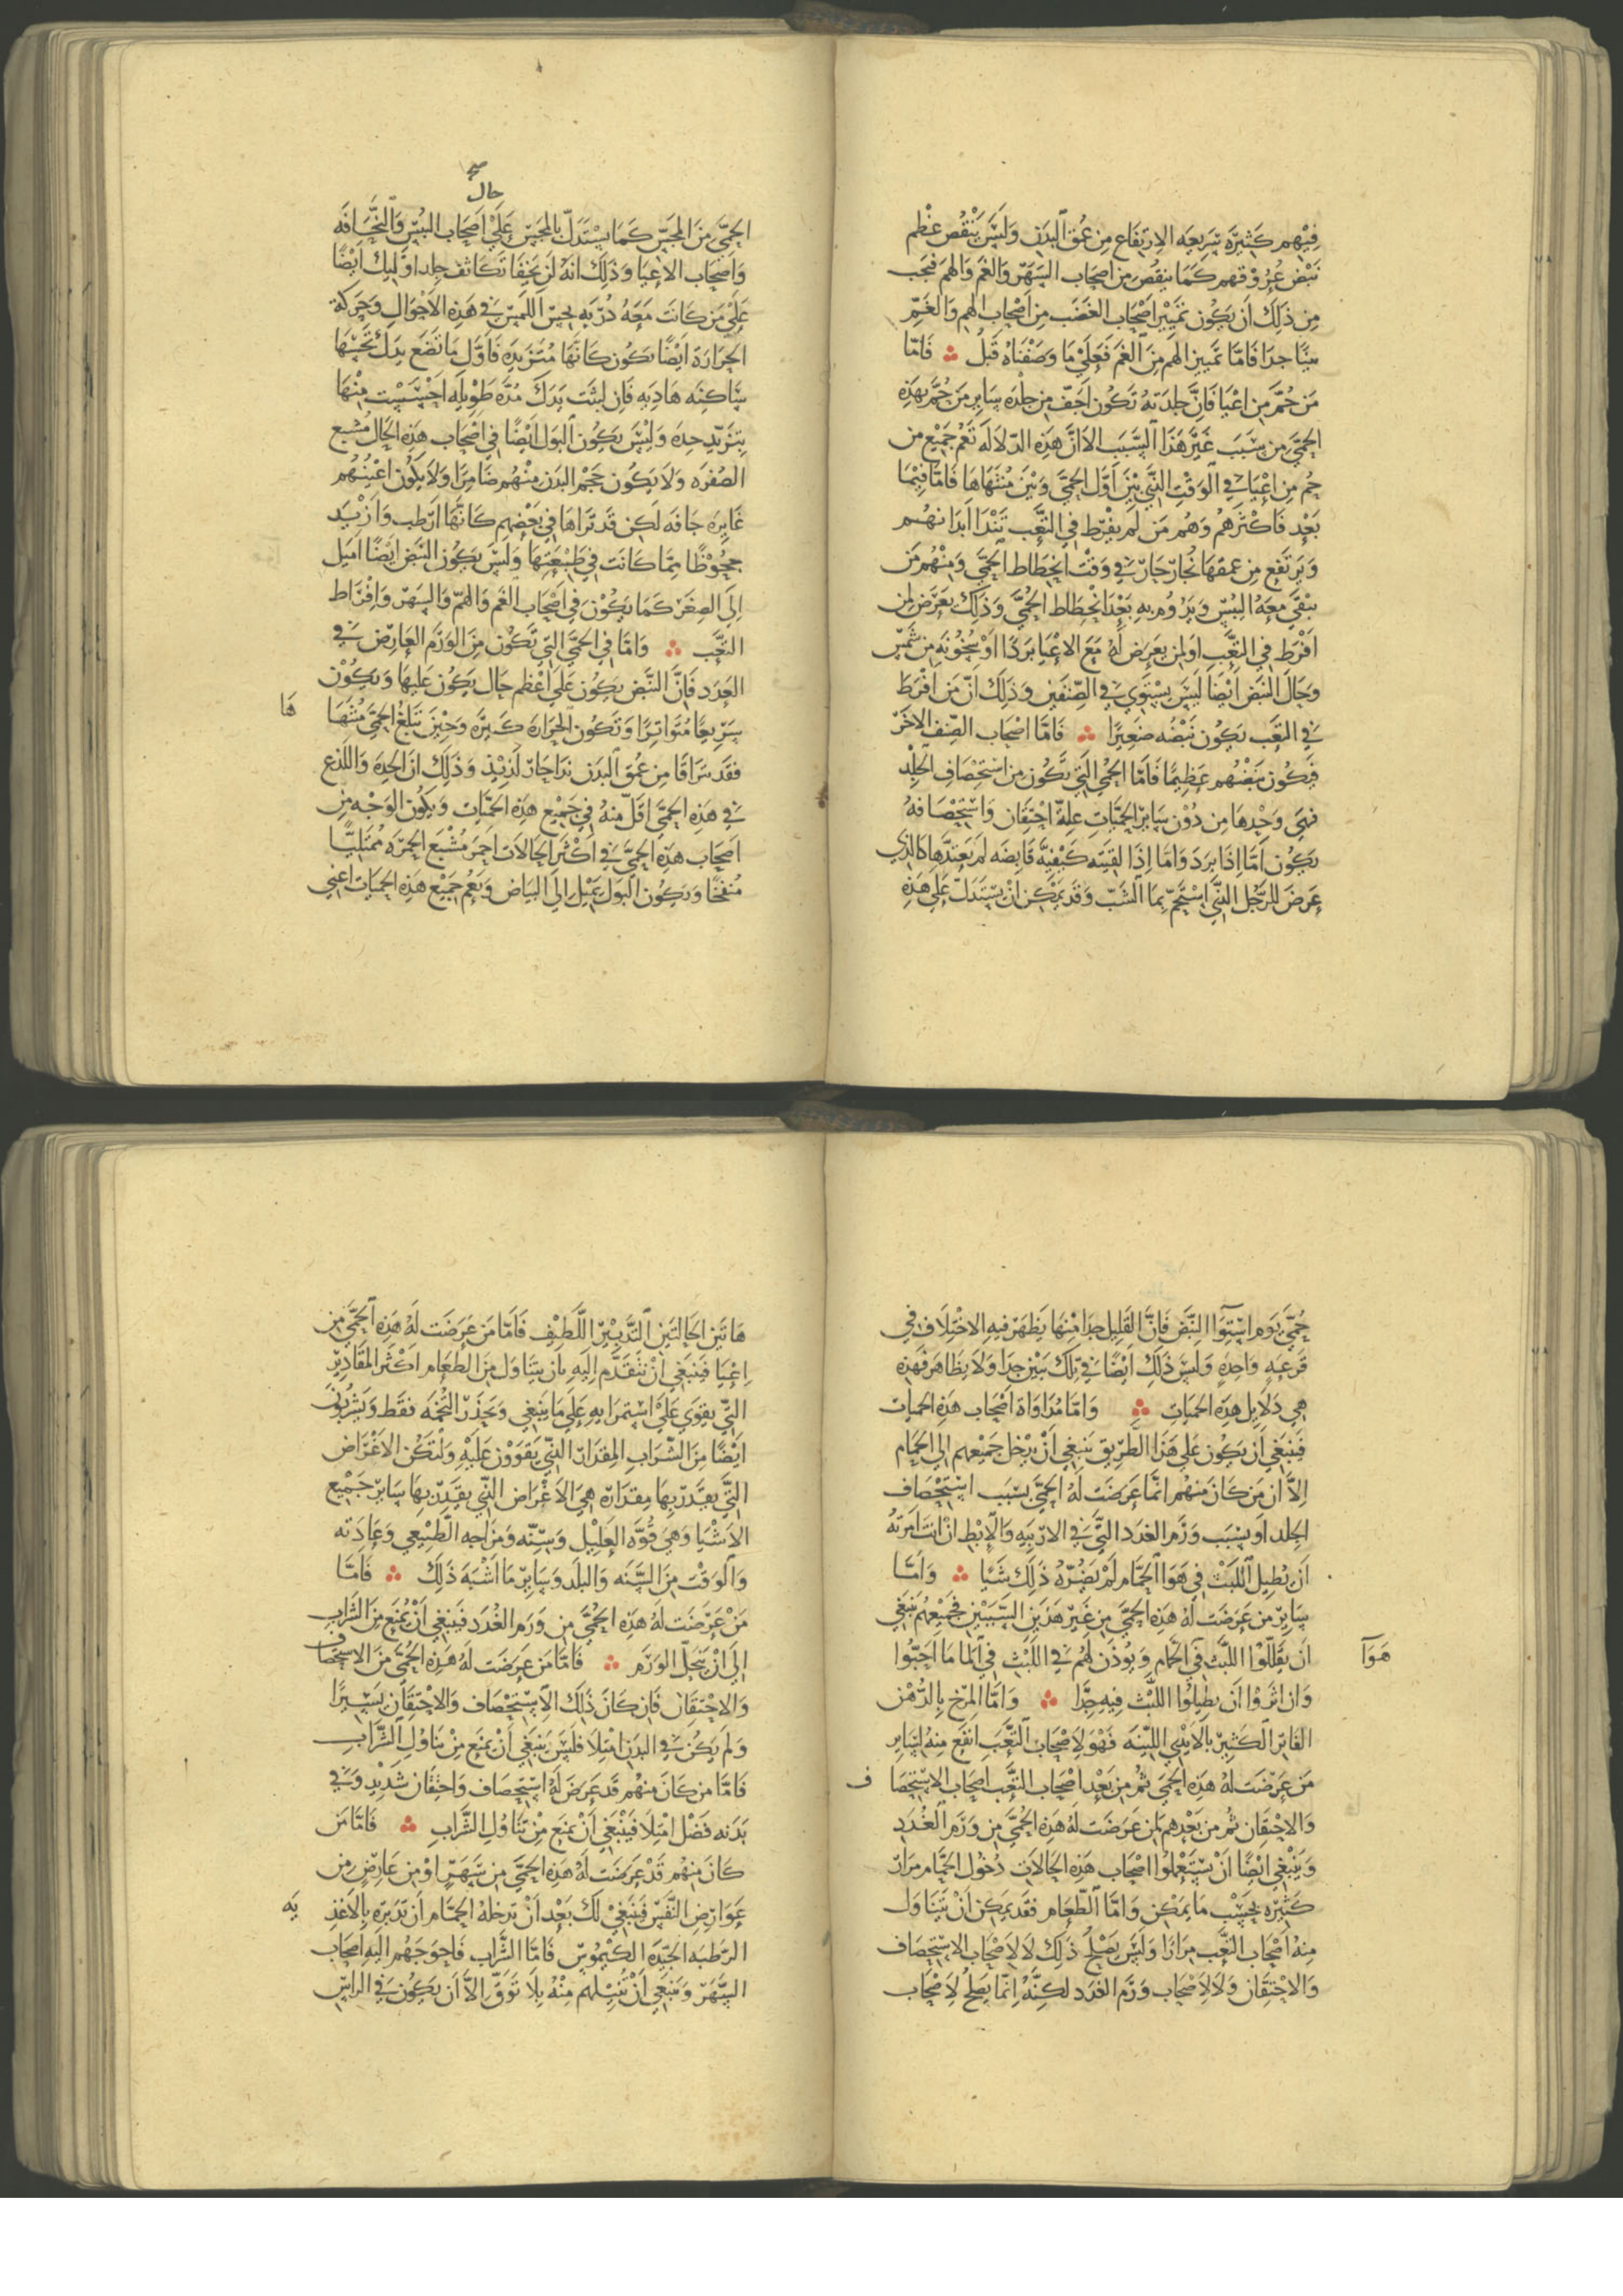 فيهم كثيره سريعه الارتفاع من عمق البدن وليس ينقص عظم
نبض عروقهم كما ينقص من اصحاب السهر والغم والهم فيجب
من ذلك ان يكون تمييز اصحاب الغضب من اصحاب الهم والغم
بينا جدا فاما تمييز الهم من الغم فعلي ما وصفناه قبل ⁘ فاما
من حم من اعيا فان جلدته تكون اجف من جلده ساير من حم بهذه
الحمي من سبب غير هذا السبب الا ان هذه الدلاله تعم جميع من
حم من اعيا في الوقت الذي بين اول الحمي وبين منتهاها فاما فيما
بعد فاكثرهم وهم من لم يفرط في التعب تندا ابدانهم
ويرتفع من عمقها بخار حار في وقت انحطاط الحمي ومنهم من
يبقي معه اليبس ويدوم به بعد انحطاط الحمي وذلك يعرض لمن
افرط في التعب او لمن يعرض له مع الاعيا برد او سخونه من شمس
وحال النبض ايضا ليس يستوي في الصنفين وذلك ان من افرط
في التعب يكون نبضه صغيرا ⁘ فاما اصحاب الصنف الاخر
فيكون نبضهم عظيما فاما الحمي التي تكون من استحصاف الجلد
فهي وحدها من دون ساير الحميات علة احتقان واستحصافه
يكون اما اذا برد واما اذا لقيته كيفيه قابضه لم يعتدها كالذي
عرض للرجل الذي استحم بما الشب وقد يمكن ان يستدل علي هذه
حال
الحمي من المجس كما يستدل بالمجس علي اصحاب اليبس والنحافه
واصحاب الاعيا وذلك انه لن يخفا تكاثف جلد اوليك ايضا
علي من كانت معه دربه بحس اللمس في هذه الاحوال وحركة
الحرارة ايضا تكون كانها متزيده فاول ما تضع يدك تحسها
ساكنه هاديه فان لبثت يدك مدة طويله احسست منها
بتزيد حده وليس يكون البول ايضا في اصحاب هذه الحال مشبع
الصفره ولا يكون حجم البدن منهم ضامرا ولا يكون اعينهم
غايره جافه لكن قد تراها في بعضهم كانها ارطب وازيد
جحوظا مما كانت في طبيعتها وليس يكون النبض ايضا اميل
الي الصغر كما يكون في اصحاب الغم والهم والسهر وافراط
التعب ⁘ واما في الحمي التي تكون من الورم العارض في
الغدد فان النبض يكون علي اعظم حال يكون عليها ويكون
سريعا متواترا وتكون الحرارة كثيرة وحين تبلغ الحمي منتهاها
فا
فقد تراقا من عمق البدن ندا حار لذيذ وذلك ان الحده واللذع
في هذه الحمي اقل منه في جميع هذه الحميات ويكون الوجه من
اصحاب هذه الحمي في اكثر الحالات احمر مشبع الحمره ممتليا
منفخا ويكون البول يميل الي البياض ويعم جميع هذه الحميات اعني
حمي يوم استوآ النبض فان القليل جدا منها يظهر فيه الاختلاف في
قرعه واحده وليس ذلك ايضا في تلك بين جدا ولا بظاهر فهذه
هي دلايل هذه الحميات ⁘ واما مداواة اصحاب هذه الحميات
فينبغي ان يكون علي هذا الطريق ينبغي ان يدخل جميعهم الي الحمام
الا ان من كان منهم انما عرضت له الحمي بسبب استحصاف
الجلد او بسبب ورم الغدد التي في الاربيه والابط ان انت امرته
ان يطيل اللبث في هوا الحمام لم يضره ذلك شيا ⁘ واما
ساير من عرضت له هذه الحمي من غير هذين السببين فجميعهم ينبغي
ان يقللوا اللبث في الحمام ويوذن لهم في اللبث في الما ما احبوا
هوآ
وان اثروا ان يطيلوا اللبث فيه جدا ⁘ واما المرخ بالدهن
الفاتر الكثير بالايدي اللينه فهو لاصحاب التعب انفع منه لساير
من عرضت له هذه الحمي ثم من بعد اصحاب التعب اصحاب الاستحصا
ف
والاحتقان ثم من بعدهم لمن عرضت له هذه الحمي من ورم الغدد
وينبغي ايضا ان يستعملوا اصحاب هذه الحالات دخول الحمام مرار
كثيره بحسب ما يمكن واما الطعام فقد يمكن ان يتناول
منه اصحاب التعب مرارا وليس يصلح ذلك لا لاصحاب الاستحصاف
والاحتقان ولا لاصحاب ورم الغدد لكنه انما يصلح لاصحاب
هاتين الحالتين التدبير اللطيف فاما من عرضت له هذه الحمي من
اعيا فينبغي ان نتقدم اليه بان يتناول من الطعام اكثر المقادير
التي يقوي علي استمرايه علي ما ينبغي ويحذر التخمه فقط ويشربون
ايضا من الشراب المقدار الذي يقوون عليه ولتكن الاغراض
التي يقدر بها مقداره هي الاغراض التي يقدر بها ساير جميع
الاشيا وهي قوه العليل وسنه ومزاجه الطبيعي وعادته
والوقت من السنه والبلد وساير ما اشبه ذلك ⁘ فاما
من عرضت له هذه الحمي من ورم الغدد فينبغي ان يمنع من الشراب
الي ان ينحل الورم ⁘ فاما من عرضت له هذه الحمي من الاستحصاف
والاحتقان فان كان ذلك الاستحصاف والاحتقان يسيرا
ولم يكن في البدن امتلا فليس ينبغي ان يمنع من تناول الشراب
فاما من كان منهم قد عرض له استحصاف واحتقان شديد وفي
بدنه فضل امتلا فينبغي ان يمنع من تناول الشراب ⁘ فاما من
كان منهم قد عرضت له هذه الحمي من سهر او من عارض من
عوارض النفس فينبغي لك بعد ان تدخله الحمام ان تدبره بالاغذ
يه
الرطبه الجيده الكيموس فاما الشراب فاحوجهم اليه اصحاب
السهر وينبغي ان تنيلهم منه بلا توق الا ان يكون في الراس